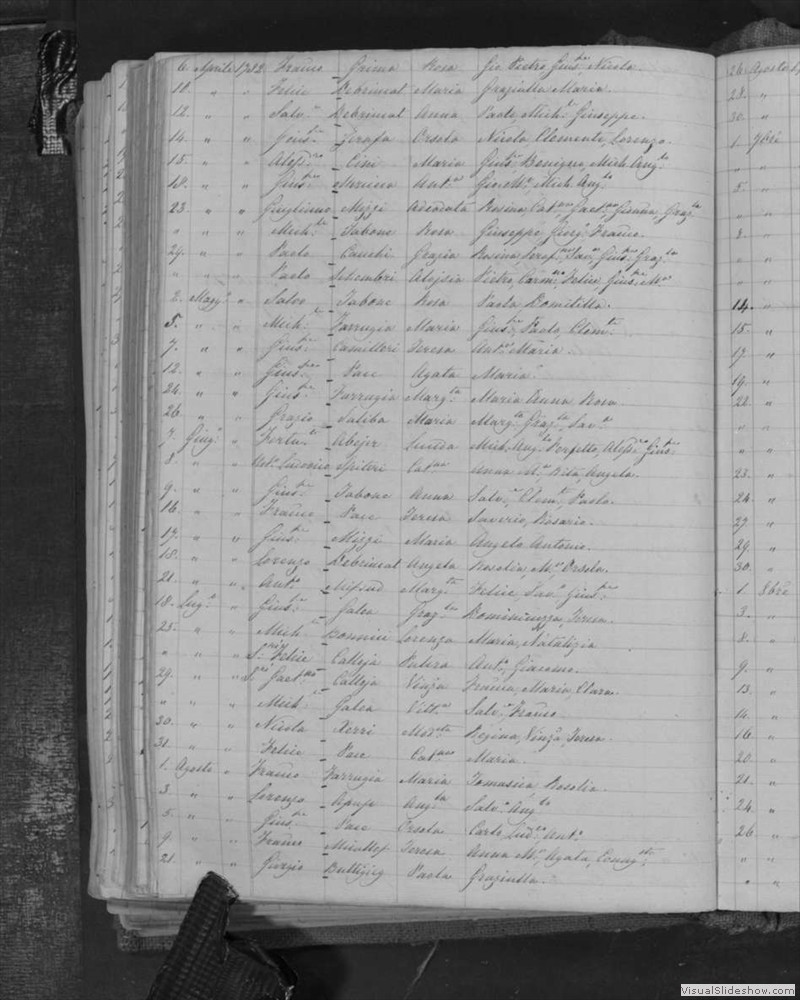 6. Aprile 1912 Franco Grima Rosa Gio Pietro, Gius.e, Nicola.
11. " " Felice Debrincat Maria Graziulla Maria.
12. " " Salv.e Debrincat Anna Paolo, Mich.l Giuseppe.
14. " " Gius.e Zerafa Orsola Nicola, Clemente, Lorenzo.
15. " " Aless.o Cini Maria Gius.e, Benigno, Mich. Ang.lo
18. " " Gius.e Ant.a Mich. Ang.lo
23. " " Mizzi Adeodata Rosina, Cat.na, Gaet.na, Gioanna, Graz.la
" " " Mich.le Tabone Rosa Giuseppe Franco.
24. " " Paolo Cauchi Grazia Rosina, Gius.e, Graz.la
" " " Paolo Settembri Aloysia Pietro, Carm.no, Felice, Gius.e, M.a
2. Magg.o " Salvo Tabone Rosa Paola Domitilla.
5. " " Mich.le Farrugia Maria Gius.e, Paolo, Clem.te
7. " " Gius.e Camilleri Teresa Ant.a Maria.
12. " " Gius.e Pace Agata Maria.
24. " " Gius.e Farrugia Marg.ta Maria Anna Rosa.
26. " " Grazio Saliba Maria Marg.ta, Graz.la, Sav.e
7. Giug.o " Fortu.to Abejer Lucida Mich. Ang.lo, Perfetto, Aless.o, Gius.e
8. " " Ant. Ludovico Spiteri Cat.na Anna M.a, Rosa, Angela.
9. " " Gius.e Tabone Anna Salv.e, Clem.te, Paolo.
16. " " Franco Pace Teresa Saverio, Rosario.
17. " " Gius.e Mizzi Maria Angelo Antonio.
18. " " Lorenzo Debrincat Angela Rosolia, M.a Orsola.
21. " " Ant.o Mifsud Marg.ta Felice, Sav.e, Gius.e
18. Lug.o " Gius.e Galea Graz.la Teresa.
25. " " Mich.le Bonnici Lorenza Maria, Natalizia
" " " Felice Calleja Pulira Ant.o, Giacomo.
29. " " Gaet.no Calleja Vinza Franca, Maria, Clara.
" " " Mich.le Galea Vitt.a Salv.e, Franco.
30. " " Nicola Xerri Mod.sta Regina, Vinz.a, Teresa.
31. " " Felice Pace Cat.na Maria.
1. Agosto " Franco Farrugia Maria Tomasina, Rosolia.
3. " " Lorenzo Apap Ang.la Salv.e Ang.lo
5. " " Gius.e Pace Orsola Carlo, Lud.co, Ant.o
9. " " Franco Micallef Teresa Anna M.a, Agata, Consag.ta
21. " " Giorgio Buttigieg Paola Graziulla.
26. Agosto
28. "
30. "
1. 7bre
" "
5. "
" "
8. "
" "
" "
14. "
15. "
17. "
19. "
22. "
" "
" "
23. "
24. "
27. "
29. "
30. "
1. 8bre
3. "
8. "
9. "
13. "
14. "
16. "
20. "
21. "
24. "
26. "
" "
" "
VisualSlideshow.com